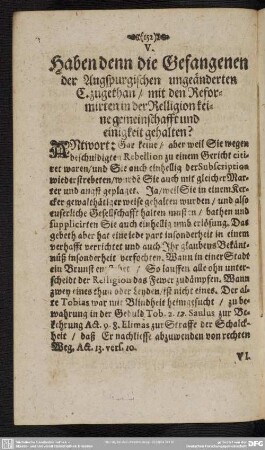 (152)
V.
Haben denn die Gefangenen
der Augspurgischen ungeänderten
C. zugethan / mit den Refor-
mirten in der Relligion kei-
ne gemeinschafft und
einigkeit gehalten?
ANtwort: Gar keine / aber weil Sie wegen
beschuldigter Rebellion zu einem Gericht citi-
ret waren / und Sie auch einhellig der Subscription
wiederstrebeten / wurde Sie auch mit gleicher Mar-
ter und angst geplaget. Ja / weil Sie in einem Ker-
cker gewalthätiger weise gehalten wurden / und also
euserliche Gesellschafft halten musten / bathen und
supplicirten Sie auch einhellig umb erlösung. Das
gebeth aber hat eine jeder part insonderheit in einem
verhafft verrichtet und auch Ihr glaubens Bekänt-
nüß insonderheit verfochten. Wann in einer Stadt
ein Brunst / So lauffen alle ohn unter-
scheidt der Relligion das Fewer zudämpffen. Wann
zwey eines thun oder leyden / ist nicht eines. Der al-
te Tobias war mit Blindheit heimgesucht / zu be-
wahrung in der Gedult Tob. 2. 12. Saulus zur Be-
kehrung Act. 9. 8. Elimas zur Straffe der Schalck-
heit / daß Er nachliesse abzuwenden von rechten
Weg, Act. 13. vers. 10.
VI.